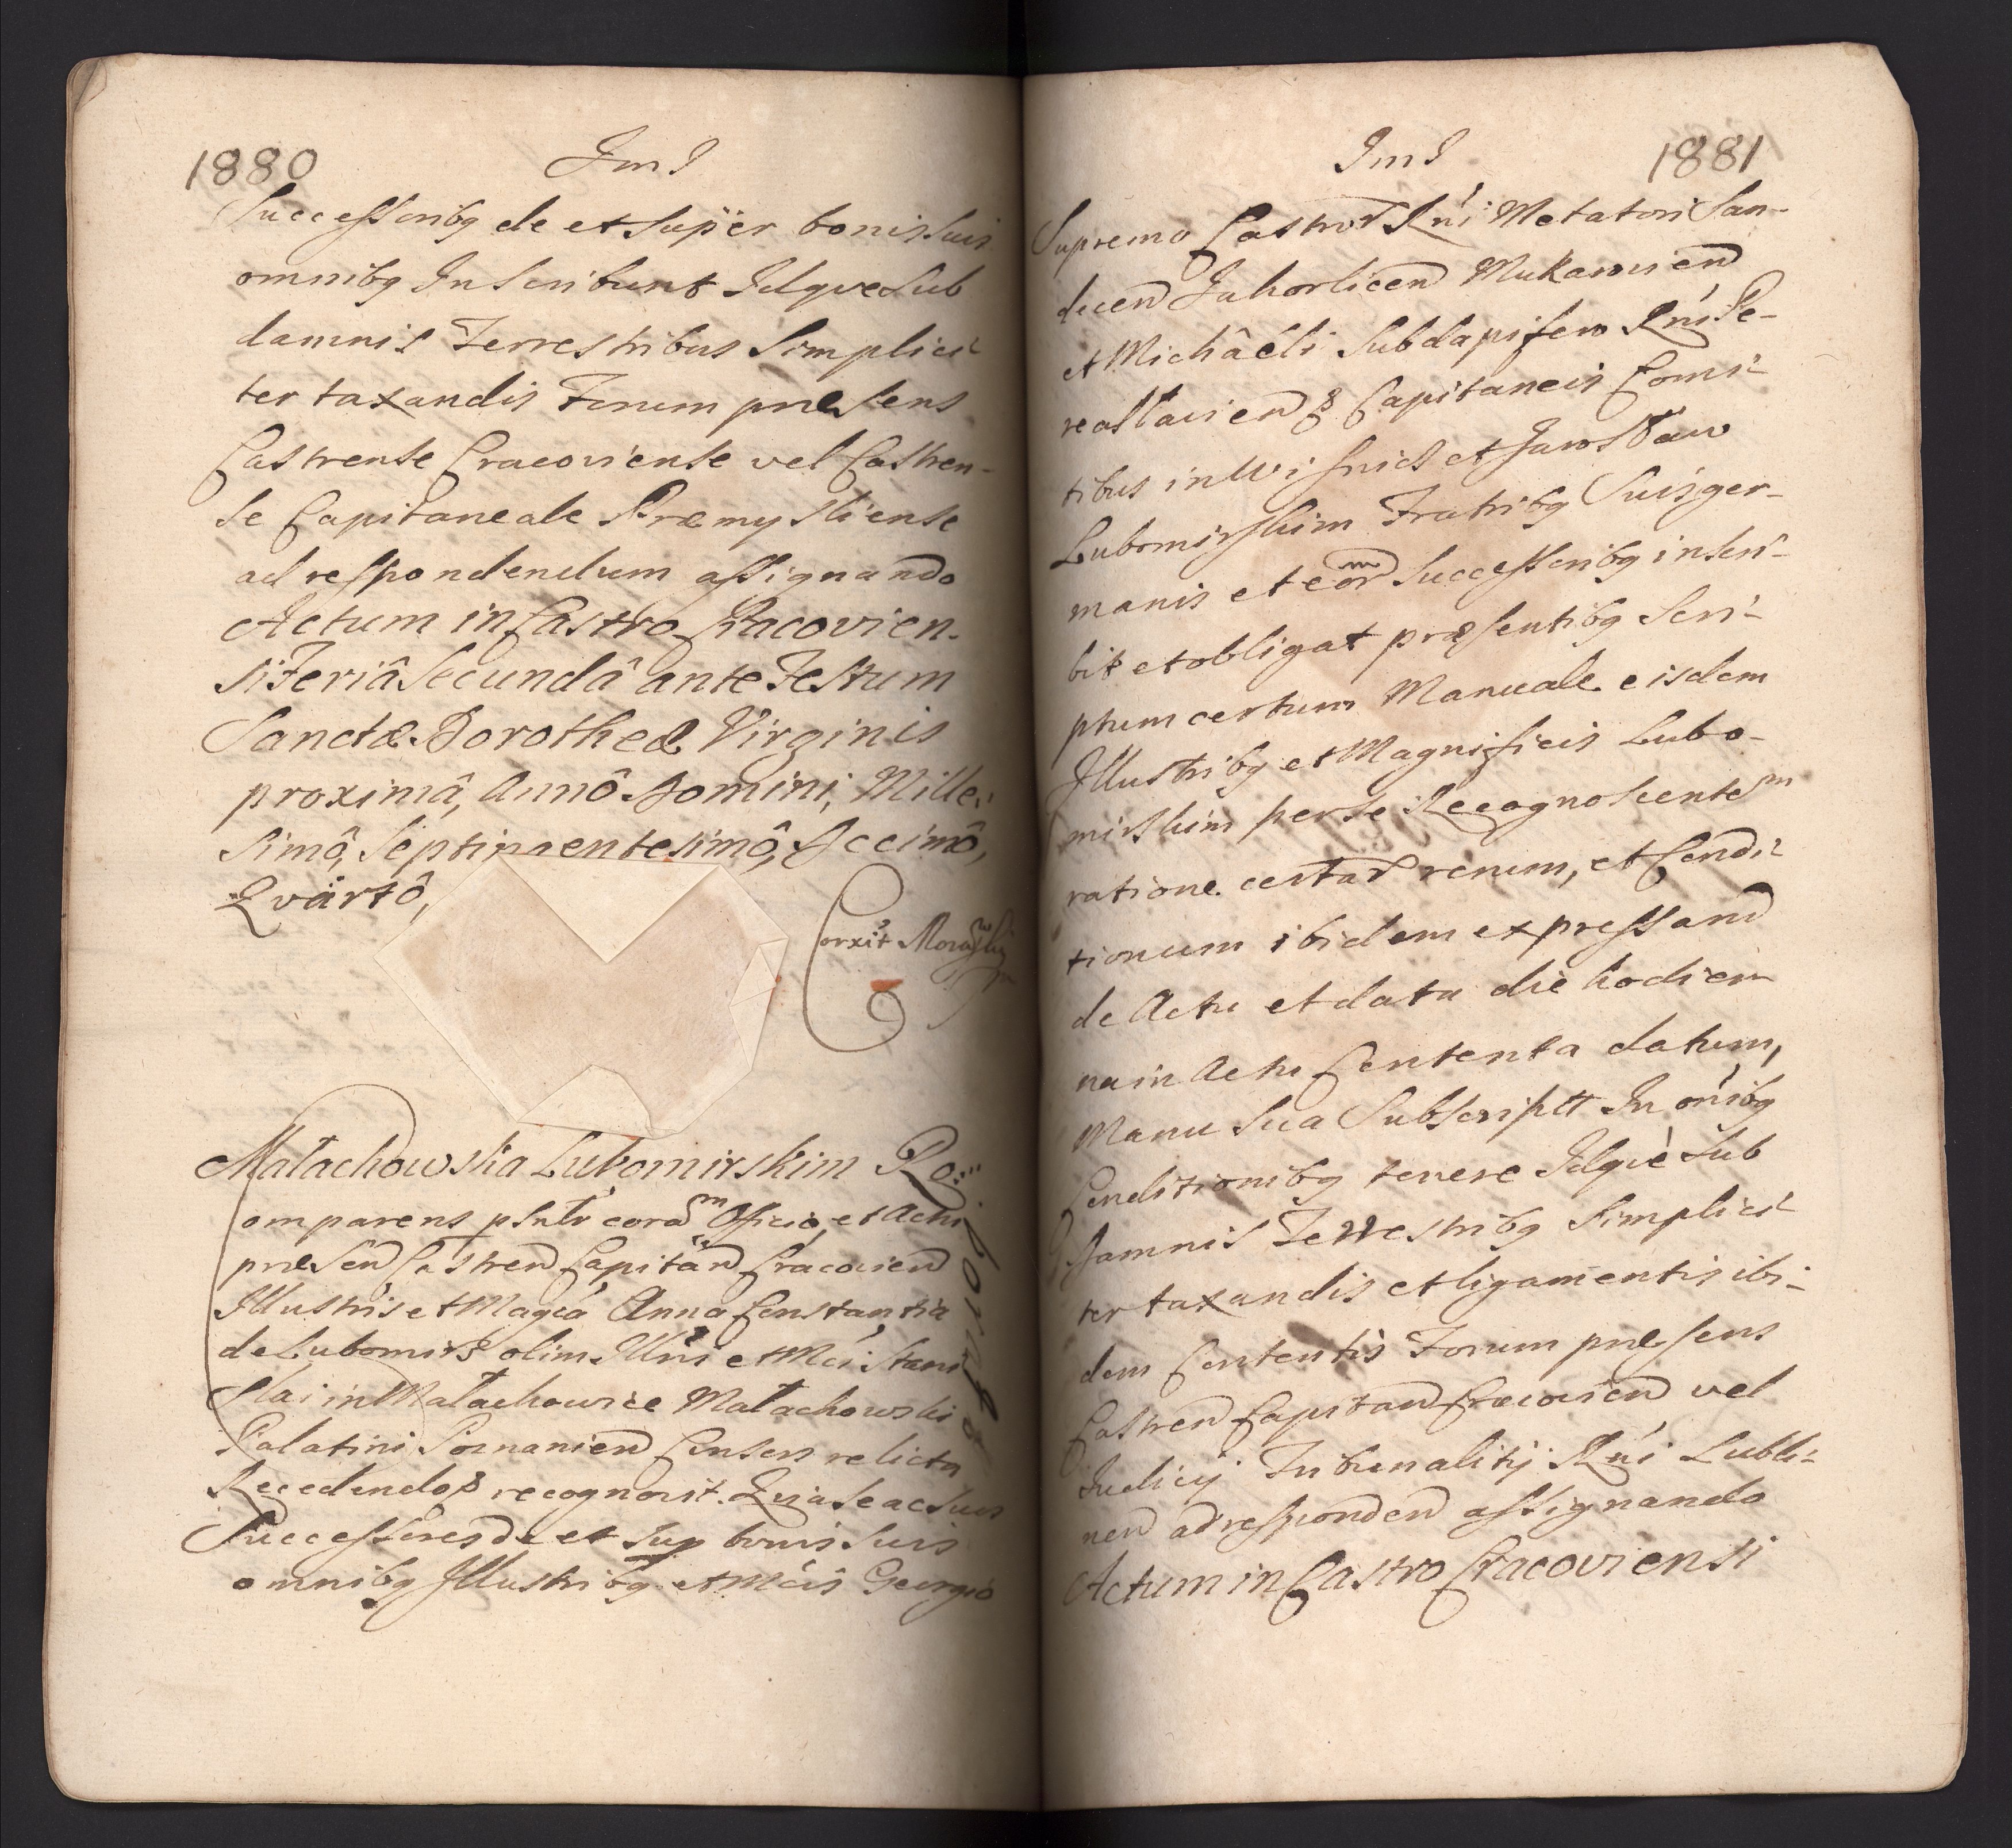 1880 Ims
Successoribq de et super bonis suis
omnibq Inscribunt Idqve sub
damnis Terrestribus simplici-
ter taxandis Forum præsens
Castrense Cracoviense vel Castren-
se Capitaneale Præmysliense
ad respondendum assignando
Actum in Castro Cracovien-
si Feriâ Secundâ ante Festum
Sanctæ Dorotheæ Virginis
proximâ, Annô Domini, Mille-
simô, Septingentesimô, Decimô,
Qvartô,
Corxit
Małachowska Lubomirskim Ro:
omparens psntr corā Officio, et Actis
præsen Castren Capitan Cracovien
Illustris et Magca Anna Constantia
de Lubomirz olim Illris et Mci Stani
slai in Małachowice Małachowski
Palatini Posnanien Consors relicta
Recedendo recognovit. Quia se ac suos
Successores de et sup bonis suis
omnibq Illustribq et Mcis Georgio
Roborat
Ims 1881
Supremo Castror Rni Metatori San-
decen Jahorlicen
et Michâéli Subdapifero Rni Pe-
reasławien & Capitaneis Comi-
tibus in Wisnicz et Jarosław
Lubomirskim Fratribq Suis ger-
manis et eorm Successoribq inscri-
bit et obligat præsentibq Scri-
ptum certum Manuale eisdem
Illustribq et Magnificis Lubo-
mirskim per se Recognoscentem
ratione certar rerum, et Condi-
tionum ibidem expressand
de Actu et data die hodier-
na in Actu Contenta datum,
Manu Sua Subscriptt In oníbq
Conditionibq tenere Idqve sub
Damnis Terrestribq Simplici-
ter taxandis et ligamentis ibi-
dem Contentis Forum præsens
Castren Capitan Cracovien vel
Judicij Tribunalitij Rni Lubli-
nen ad responden assignando
Actum in Castro Cracoviensi